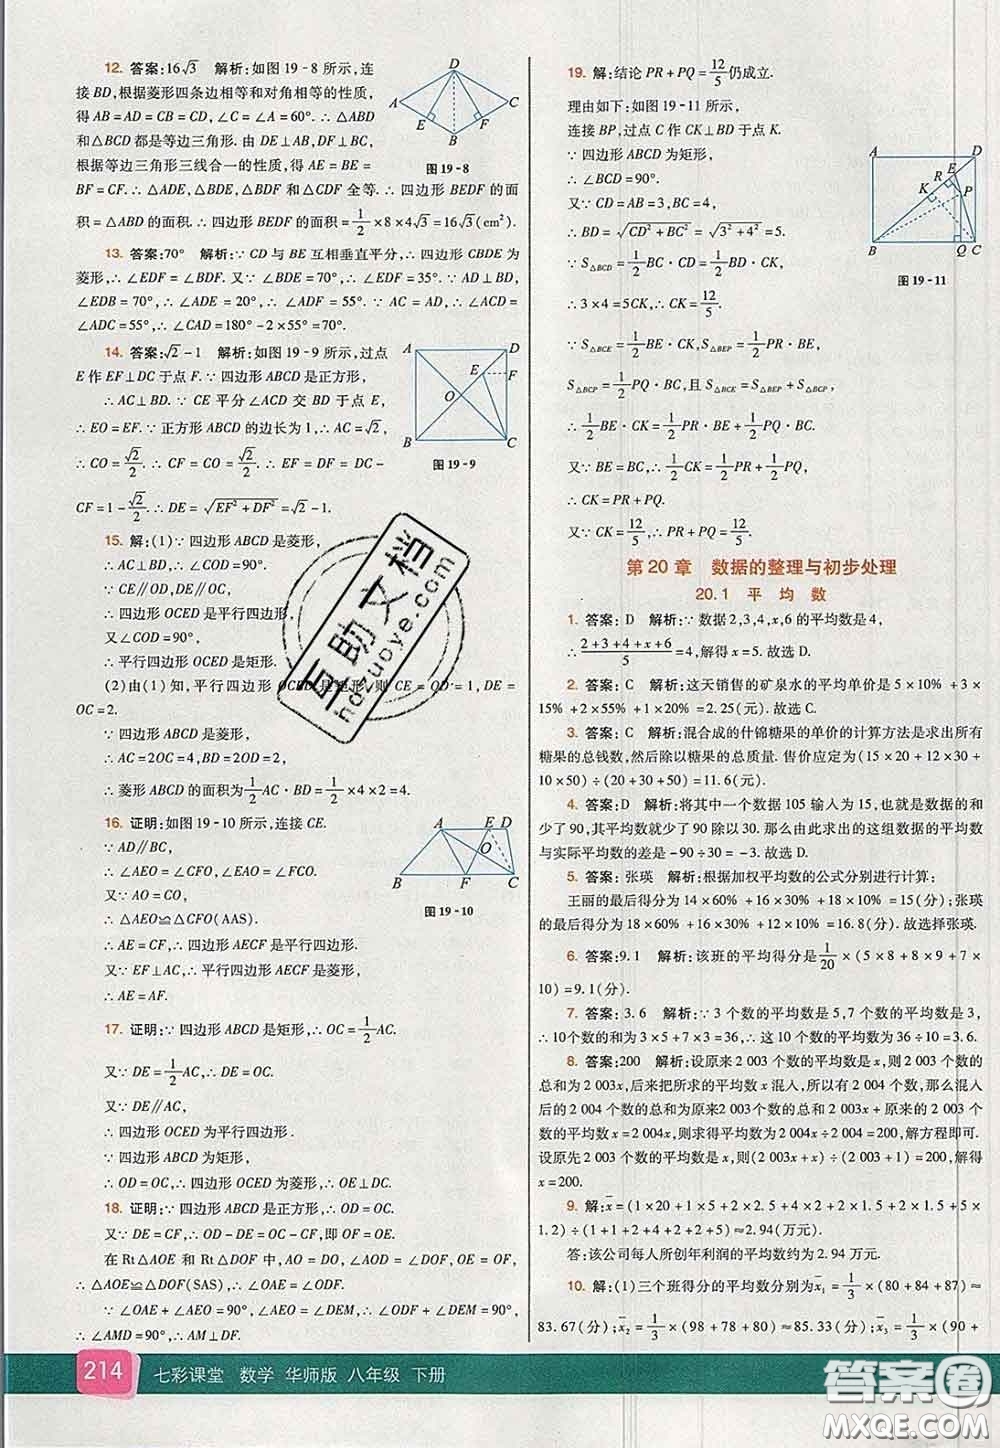 12. 答案:16√3　解析:如图 19-8 所示,连
接 BD,根据菱形四条边相等和对角相等的性质,
得 AB=BC=CD=AD,∠C=∠A=60°.∴△ABD
和△BCD 都是等边三角形.由 DE⊥AB,DF⊥BC,
根据等边三角形三线合一的性质,得 AE=BE=
BF=CF.∴△ADE,△BDE,△BDF 和△CDF 全等.∴四边形 BEDF 的面
积=△ABD 的面积.∴四边形 BEDF 的面积=1/2×8×4√3=16√3(cm²).
A
B
C
D
E
F
图 19-8
13. 答案:70°　解析:∵CD 与 BE 互相垂直平分,∴四边形 CBDE 为
菱形,∴∠EDF=∠BDF.又∵∠BDE=70°,∴∠EDF=35°.∵AD⊥BD,
∠EDB=70°,∴∠ADE=20°,∴∠ADF=55°.∵AC=AD,∴∠ACD=
∠ADC=55°,∴∠CAD=180°-2×55°=70°.
14. 答案:√2-1　解析:如图 19-9 所示,过点
E 作 EF⊥DC 于点 F.∵四边形 ABCD 是正方形,
∴AC⊥BD.∵CE 平分∠ACD 交 BD 于点 E,
∴EO=EF.∵正方形 ABCD 的边长为 1,∴AC=√2,
∴CO=√2/2.∴CF=CO=√2/2.∴EF=DF=DC-
CF=1-√2/2.∴DE=√(EF²+DF²)=√2-1.
A
D
E
F
O
B
C
图 19-9
15. 解:(1)∵四边形 ABCD 是菱形,
∴AC⊥BD,∴∠COD=90°.
∵CE∥OD,DE∥OC,
∴四边形 OCED 是平行四边形.
又∠COD=90°,
∴平行四边形 OCED 是矩形.
(2)由(1)知,平行四边形 OCED 是矩形,则 CE=OD=1,DE=
OC=2.
∵四边形 ABCD 是菱形,
∴AC=2OC=4,BD=2OD=2,
∴菱形 ABCD 的面积为1/2AC·BD=1/2×4×2=4.
16. 证明:如图 19-10 所示,连接 CE.
∵AD∥BC,
∴∠AEO=∠CFO,∠EAO=∠FCO.
又∵AO=CO,
∴△AEO≌△CFO(AAS).
∴AE=CF,∴四边形 AECF 是平行四边形.
又∵EF⊥AC,∴四边形 AECF 是菱形,
∴AE=AF.
A
E
D
O
B
F
C
图 19-10
17. 证明:∵四边形 ABCD 是矩形,∴OC=1/2AC.
又∵DE=1/2AC,∴OC=DE.
又∵DE∥AC,
∴四边形 OCED 为平行四边形.
∵四边形 ABCD 为矩形,
∴OD=OC,∴四边形 OCED 是菱形,∴OE⊥DC.
18. 证明:∵四边形 ABCD 是正方形,∴OD=OC.
又∵DE=CF,∴OD-DE=OC-CF,即 OF=OE.
在 Rt△AOE 和 Rt△DOF 中,AO=DO,∠AOD=∠DOF,OE=OF,
∴△AOE≌△DOF(SAS),∴∠OAE=∠ODF.
∵∠OAE+∠AEO=90°,∠AEO=∠DEM,∴∠ODF+∠DEM=90°,
∴∠AMD=90°,∴AM⊥DF.
19. 解:结论 PR+PQ=12/5仍成立.
理由如下:如图 19-11 所示,
连接 BP,过点 C 作 CK⊥BD 于点 K.
∵四边形 ABCD 为矩形,
∴∠BCD=90°.
又∵CD=AB=3,BC=4,
∴BD=√(CD²+BC²)=√(3²+4²)=5.
∵S△BCD=1/2BC·CD=1/2BD·CK,
∴3×4=5CK,∴CK=12/5.
∵S△BCE=1/2BE·CK,S△BEP=1/2PR·BE,
S△BCP=1/2PQ·BC,且 S△BCE=S△BEP+S△BCP,
∴1/2BE·CK=1/2PR·BE+1/2PQ·BC.
又∵BE=BC,∴1/2CK=1/2PR+1/2PQ,
∴CK=PR+PQ.
又∵CK=12/5,∴PR+PQ=12/5.
A
D
E
R
K
P
B
Q
C
图 19-11
第 20 章　数据的整理与初步处理
20.1　平　均　数
1. 答案:D　解析:∵数据2,3,4,x,6 的平均数是 4,
∴(2+3+4+x+6)/5=4,解得 x=5.故选 D.
2. 答案:C　解析:这天销售的矿泉水的平均单价是 5×10%+3×
15%+2×55%+1×20%=2.25(元).故选 C.
3. 答案:C　解析:混合成的什锦糖果的单价的计算方法是求出所有
糖果的总钱数,然后除以糖果的总质量.售价应定为(15×20+12×30+
10×50)÷(20+30+50)=11.6(元).
4. 答案:D　解析:将其中一个数据 105 输人为 15,也就是数据的和
少了90,其平均数就少 90 除以 30.那么由此求出的这组数据的平均数
与实际平均数的差是-90÷30=-3.故选 D.
5. 答案:张瑛　解析:根据加权平均数的公式分别进行计算:
王丽的最后得分为 14×60%+16×30%+18×10%=15(分);张瑛
的最后得分为 18×60%+16×30%+12×10%=16.8(分).故选择张瑛.
6. 答案:9.1　解析:该班的平均得分是1/20×(5×8+8×9+7×
10)=9.1(分).
7. 答案:3.6　解析:∵3 个数的平均数是 5,7 个数的平均数是 3,
∴10个数的和为 3×5+7×3=36,∴这 10 个数的平均数为 36÷10=3.6.
8. 答案:200　解析:设原来 2 003 个数的平均数是 x,则原来 2 003 个
数的总和为 2 003x,后来把所求的平均数 x 混人,所以有 2 004 个数,那么混人
后的 2 004 个数的总和为原来 2 003 个数的总和 2 003x+混人的 2 003 个
数的平均数 x=2 004x,则求得的平均数为2 004x÷2 004=200,解方程即可.
设原先 2 003 个数的平均数是 x,则(2 003x+x)÷(2 003+1)=200,解得
x=200.
9. 解:x̄=(1×20+1×5+2×2.5+4×2.1+2×1.5+2×1.5+5×
1.2)÷(1+1+2+4+2+2+5)≈2.94(万元).
答:该公司每人所创年利润的平均数约为 2.94 万元.
10. 解:(1)三个班得分的平均数分别为x̄₁=1/3×(80+84+87)≈
83.67(分);x̄₂=1/3×(98+78+80)≈85.33(分);x̄₃=1/3×(90+
互助文档
hdzuoye.com
214　七彩课堂　数学　华师版　八年级　下册
答案圈
MXQE.COM